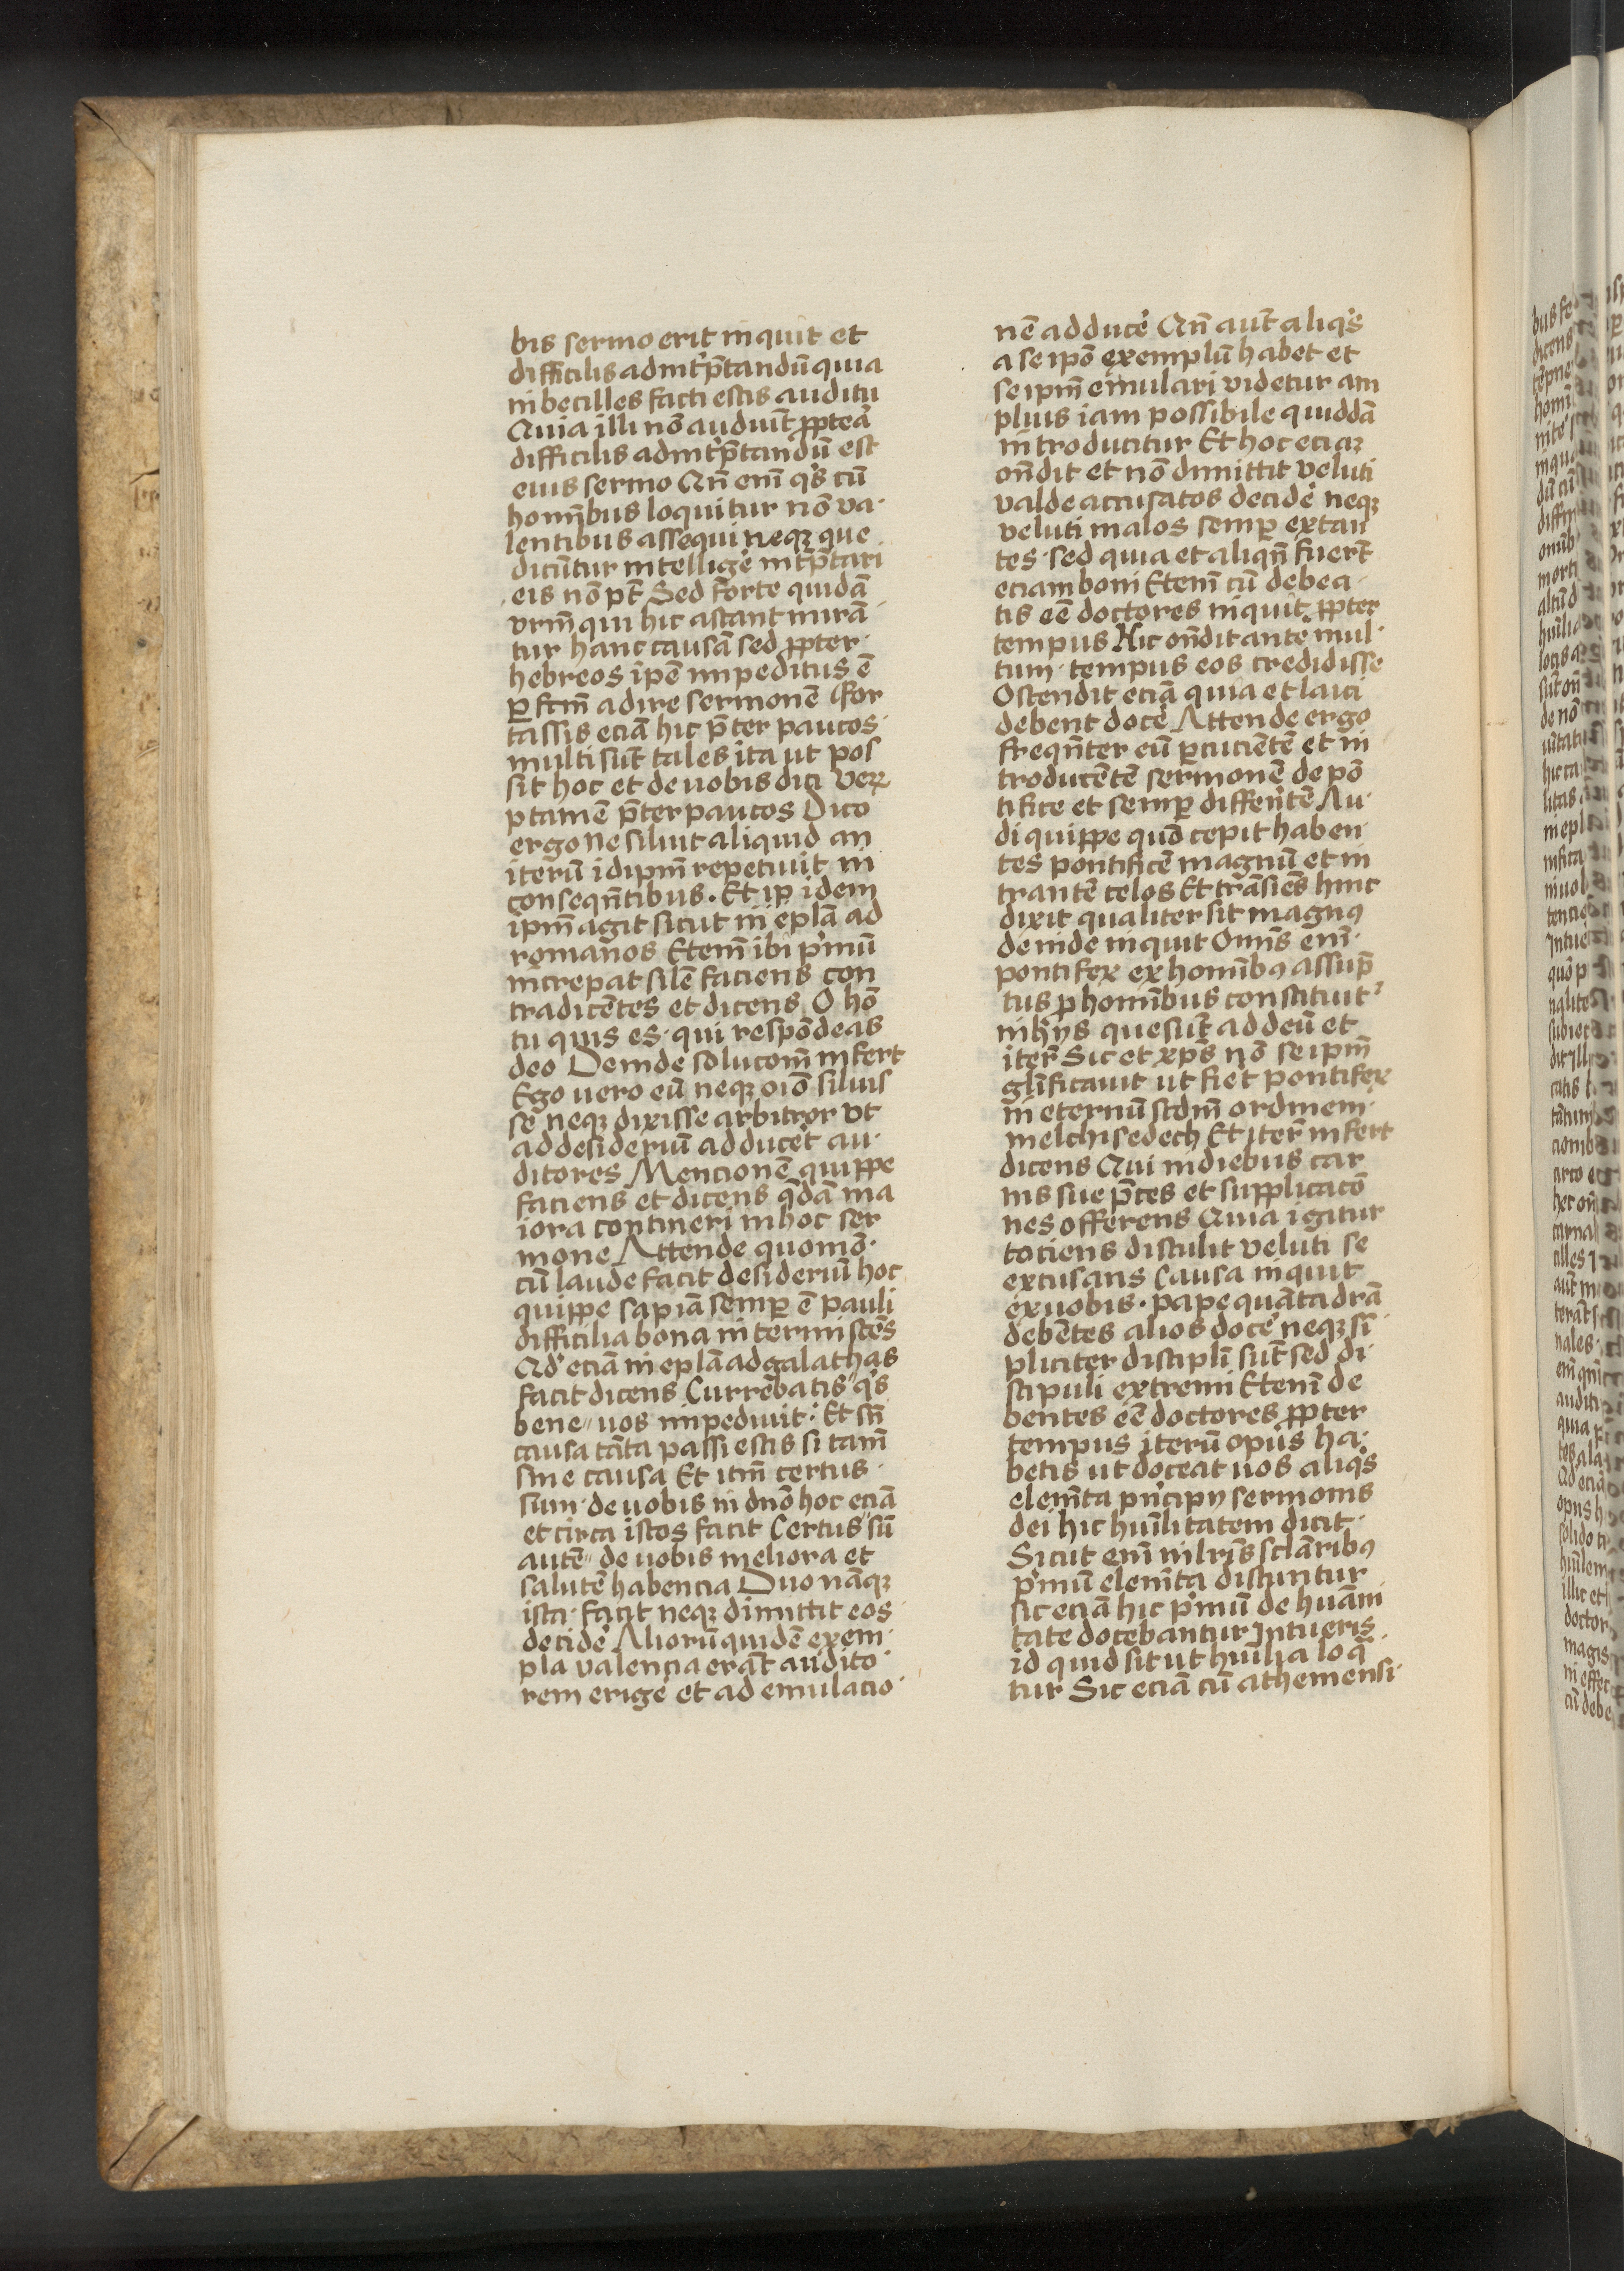 bis sermo erit inquit et
difficilis ad int̉p̄tandū quia
inbecilles facti estis auditu
Quia illi nō audiūt ꝓpteā
difficilis ad int̉p̄tandū est
eius sermo Qn̄ em̄ q̉s cū
hom̄bus loquitur nō va·
lentibus assequi neqꝫ que
dicūtur intellige̓ int̉p̄tari
eis nō pt̄ Sed forte quidā
vrm̄ qui hic astant mirā
tur hanc causā sed ꝓpter·
hebreos ip̄e impeditus ē
ꝑfcm̄ adire sermonē For
tassis eciā hic p̄ter paucos·
multi sūt tales ita ut pos
sit hoc et de uobis dici Veꝝ
ptamē p̄ter paucos Dico
ergo ne siluit aliquid an
iterū idipm̄ repetiuit in
conseqn̄tibus. Et ip̄ idem
ipm̄ agit sicut in eplā ad
romanos Etem̄ ibi p̉mū
increpat silē faciens con
tradicētes et dicens O hō
tu quis es· qui respōdeas
deo Deinde solucom̄ infert
Ego uero eū neqꝫ oīo siluis
se neqꝫ dixisse arbitror vt
ad desideriū adduce̓t au·
ditores Mencionē quippe
faciens et dicens q̄dā ma
iora contineri in hoc ser
mone Attende quomō·
cū laude facit desideriū hoc
quippe sapiā semꝑ ē pauli
difficilia bona in termiscēs
Qd̓ eciā in eplā ad galathas
facit dicens Currēbatis q̉s
bene〃 uos impediuit· Et sn̄
causa tāta passi estis si tam̄
sine causa Et itm̄ certus·
sum· de uobis in dnō hoc eciā
et circa istos facit Certus〃 sū
autē〃 de uobis meliora et
salutē habencia Duo nāqꝫ
ista· facit neqꝫ dimittit eos
decide̓ Aliorū quidē exem·
pla valencia erāt audito·
rem erige̓ et ad emulacio·
nē adduce̓ Qn̄ aut̄ aliq̉s
a se ipō exemplū habet et
se ipm̄ emulari videtur am
plius iam possibile quiddā
introducitur Et hoc eciaꝫ
on̄dit et nō dimittit veluti
valde accusatos decide̓ neqꝫ
veluti malos semꝑ extan
tes· sed quia et aliqn̄ fuer̄t
eciam boni Etem̄ cū debea·
tis eē doctores inquit ꝓpter
tempus Hic on̄dit ante mul·
tum· tempus eos credidisse
Ostendit eciā quia et laici
debent doce̓ Attende ergo
freqn̄ter eū ꝑcucientē et in
troducētē sermonē de pō
tifice et semꝑ differ̄ntē Au·
di quippe quō cepit haben·
tes pontificē magnū et in
trantē celos Et trāsiēs hinc
dixit qualiter sit magnꝰ
deinde inquit Omīs enī·
pontifex ex homībꝰ assūp̄
tus ꝓ homībus constituit᷑
in hijs que sūt ad deū et
iter̄ Sic et xp̄s nō se ipm̄
gl̄ificauit ut fie̓t pontifex
in eternū scdm̄ ordinem·
melchisedech Et iter̄ infert
dicens Qui in diebus car
nis sue p̄ces et supplicacō
nes offerens Quia igitur
tociens distulit veluti se
excusans Causa inquit
ex uobis· pape quāta dr̄a
debētes alios doce̓ neqꝫ sī
pliciter discipli sūt sed di·
scipuli extremi Etenī de
bentes eē doctores ꝓpter
tempus iterū opus ha·
betis ut doceat uos aliq̉s
elem̄ta pn̉cipij sermonis
dei hic hūilitatem dicit·
Sicut enī in lrīs sclāribꝰ
p̉mū elem̄ta discuntur
sic eciā hic p̉mū de hūani
tate docebantur Intueris
id quid sit ut hūilia loq̄
tur Sic eciā cū atheniensi·